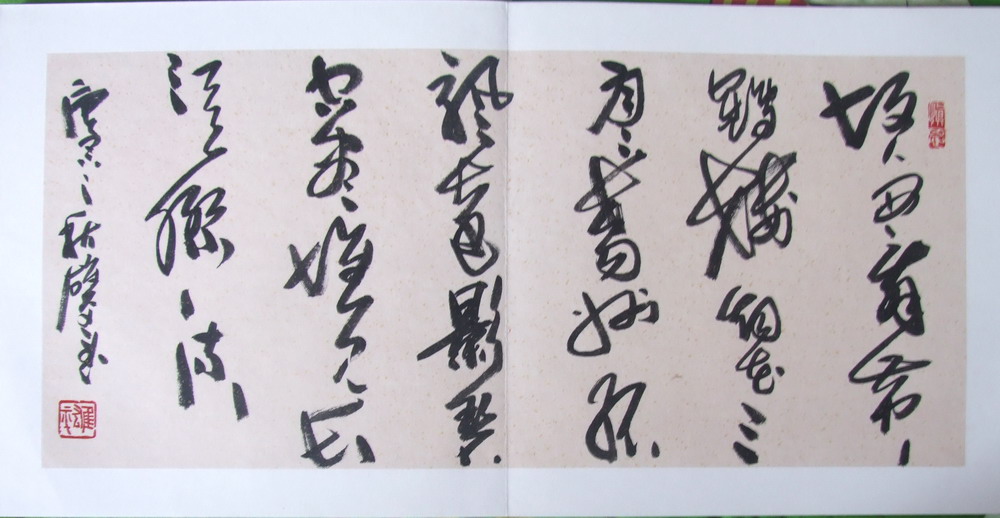 故人西辭黃
鶴樓烟花三
月下揚州孤
帆遠影碧
空盡唯見長
江天際流
之秋